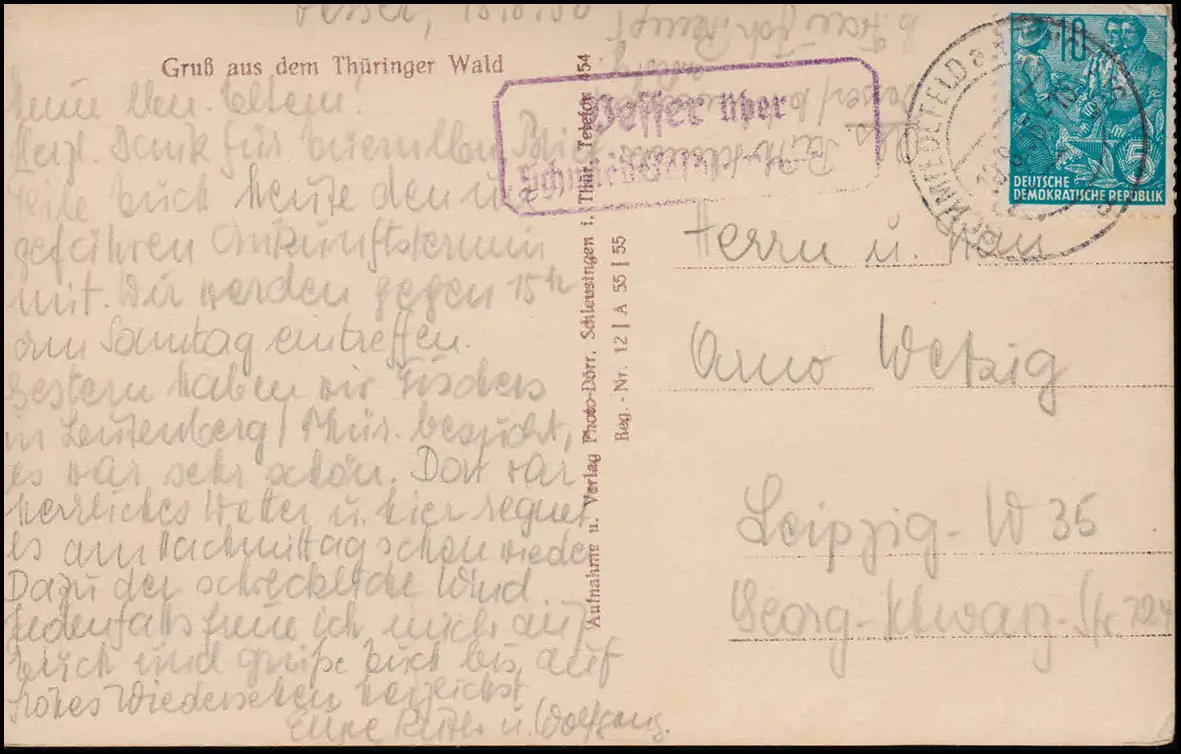 Vesser,
Gruß aus dem Thüringer Wald
Meine lben. Eltern!
Herzl. Dank für Brief.
Teile Euch heute den un
gefähren Ankunftstermin
mit. Wir werden gegen 15h
am Sonntag eintreffen.
Gestern haben wir Fischers
in Leutenberg/Thür. besucht,
es war sehr schön. Dort war
herrliches Wetter u. hier regnet
es am Nachmittag schon wieder
Dazu der schreckliche Wind
Jedenfalls freue ich mich auf
Euch und grüße Euch bis auf
frohes Wiedersehen herzlichst
Eure Ruth u. Wolfgang.
Aufnahme u. Verlag Photo-Dörr, Schleusingen i. Thür. Telefon 454
Reg.-Nr. 12 | A 55 | 55
Vesser über
10
5
DEUTSCHE
DEMOKRATISCHE REPUBLIK
Herrn u. Frau
Arno Wetzig
Leipzig-W 35
Georg-Schwarz-Str.